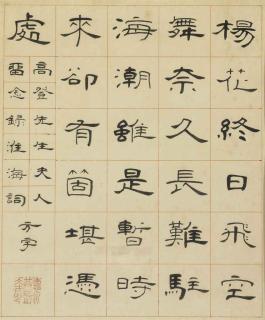 楊花終日飛空
舞奈久長難駐
海潮雖是暫時
來卻有箇堪憑
處
高登先生夫人
留念錄淮海詞
方宇